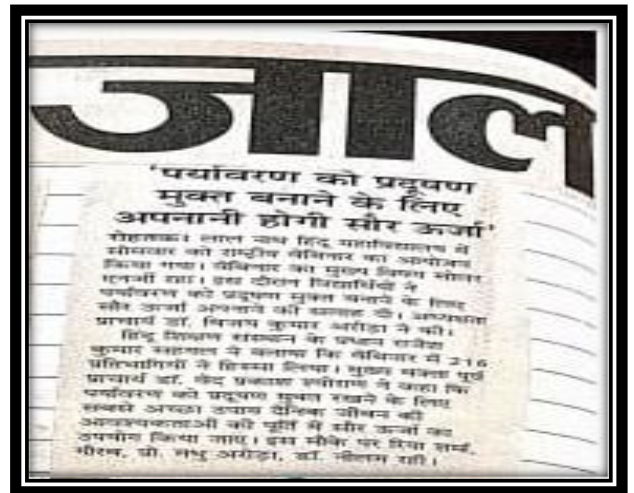 जाल
'पर्यावरण को प्रदूषण
मुक्त बनाने के लिए
अपनानी होगी सौर ऊर्जा'
रोहतक। लाल नाथ हिंदू महाविद्यालय में
सोमवार को राष्ट्रीय वेबिनार का आयोजन
किया गया। वेबिनार का मुख्य विषय सोलर
एनर्जी रहा। इस दौरान विद्यार्थियों ने
पर्यावरण को प्रदूषण मुक्त बनाने के लिए
सौर ऊर्जा अपनाने की सलाह दी। अध्यक्षता
प्राचार्य डॉ. विजय कुमार अरोड़ा ने की।
हिंदू शिक्षण संस्थान के प्रधान राजेश
कुमार सहगल ने बताया कि वेबिनार में 216
प्रतिभागियों ने हिस्सा लिया। मुख्य वक्ता पूर्व
प्राचार्य डॉ. वेद प्रकाश श्योराण ने कहा कि
पर्यावरण को प्रदूषण मुक्त रखने के लिए
सबसे अच्छा उपाय दैनिक जीवन की
आवश्यकताओं की पूर्ति में सौर ऊर्जा का
उपयोग किया जाए। इस मौके पर रिया शर्मा,
गौरव, प्रो. मधु अरोड़ा, डॉ. नीलम रही।